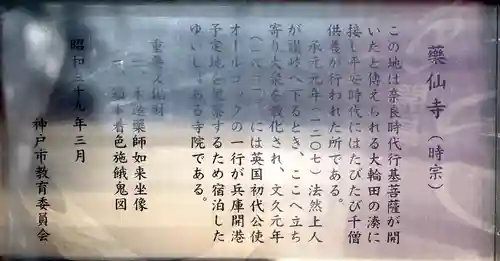 薬仙寺(時宗)
この地は奈良時代行基菩薩が開
いたと傳えられる大輪田の湊に
接し平安時代にはたびたび千僧
供養が行われた所である。
承元元年(一二〇七)法然上人
が讃岐へ下るとき、ここへ立ち
寄り大衆を教化され、文久元年
(一八六一)には英国初代公使
オールコックの一行が兵庫開港
予定地を視察するため宿泊した
ゆいしょある寺院である。
重要文化財
一、木造薬師如来坐像
一、絹本着色施餓鬼図
昭和三十九年三月
神戸市教育委員会